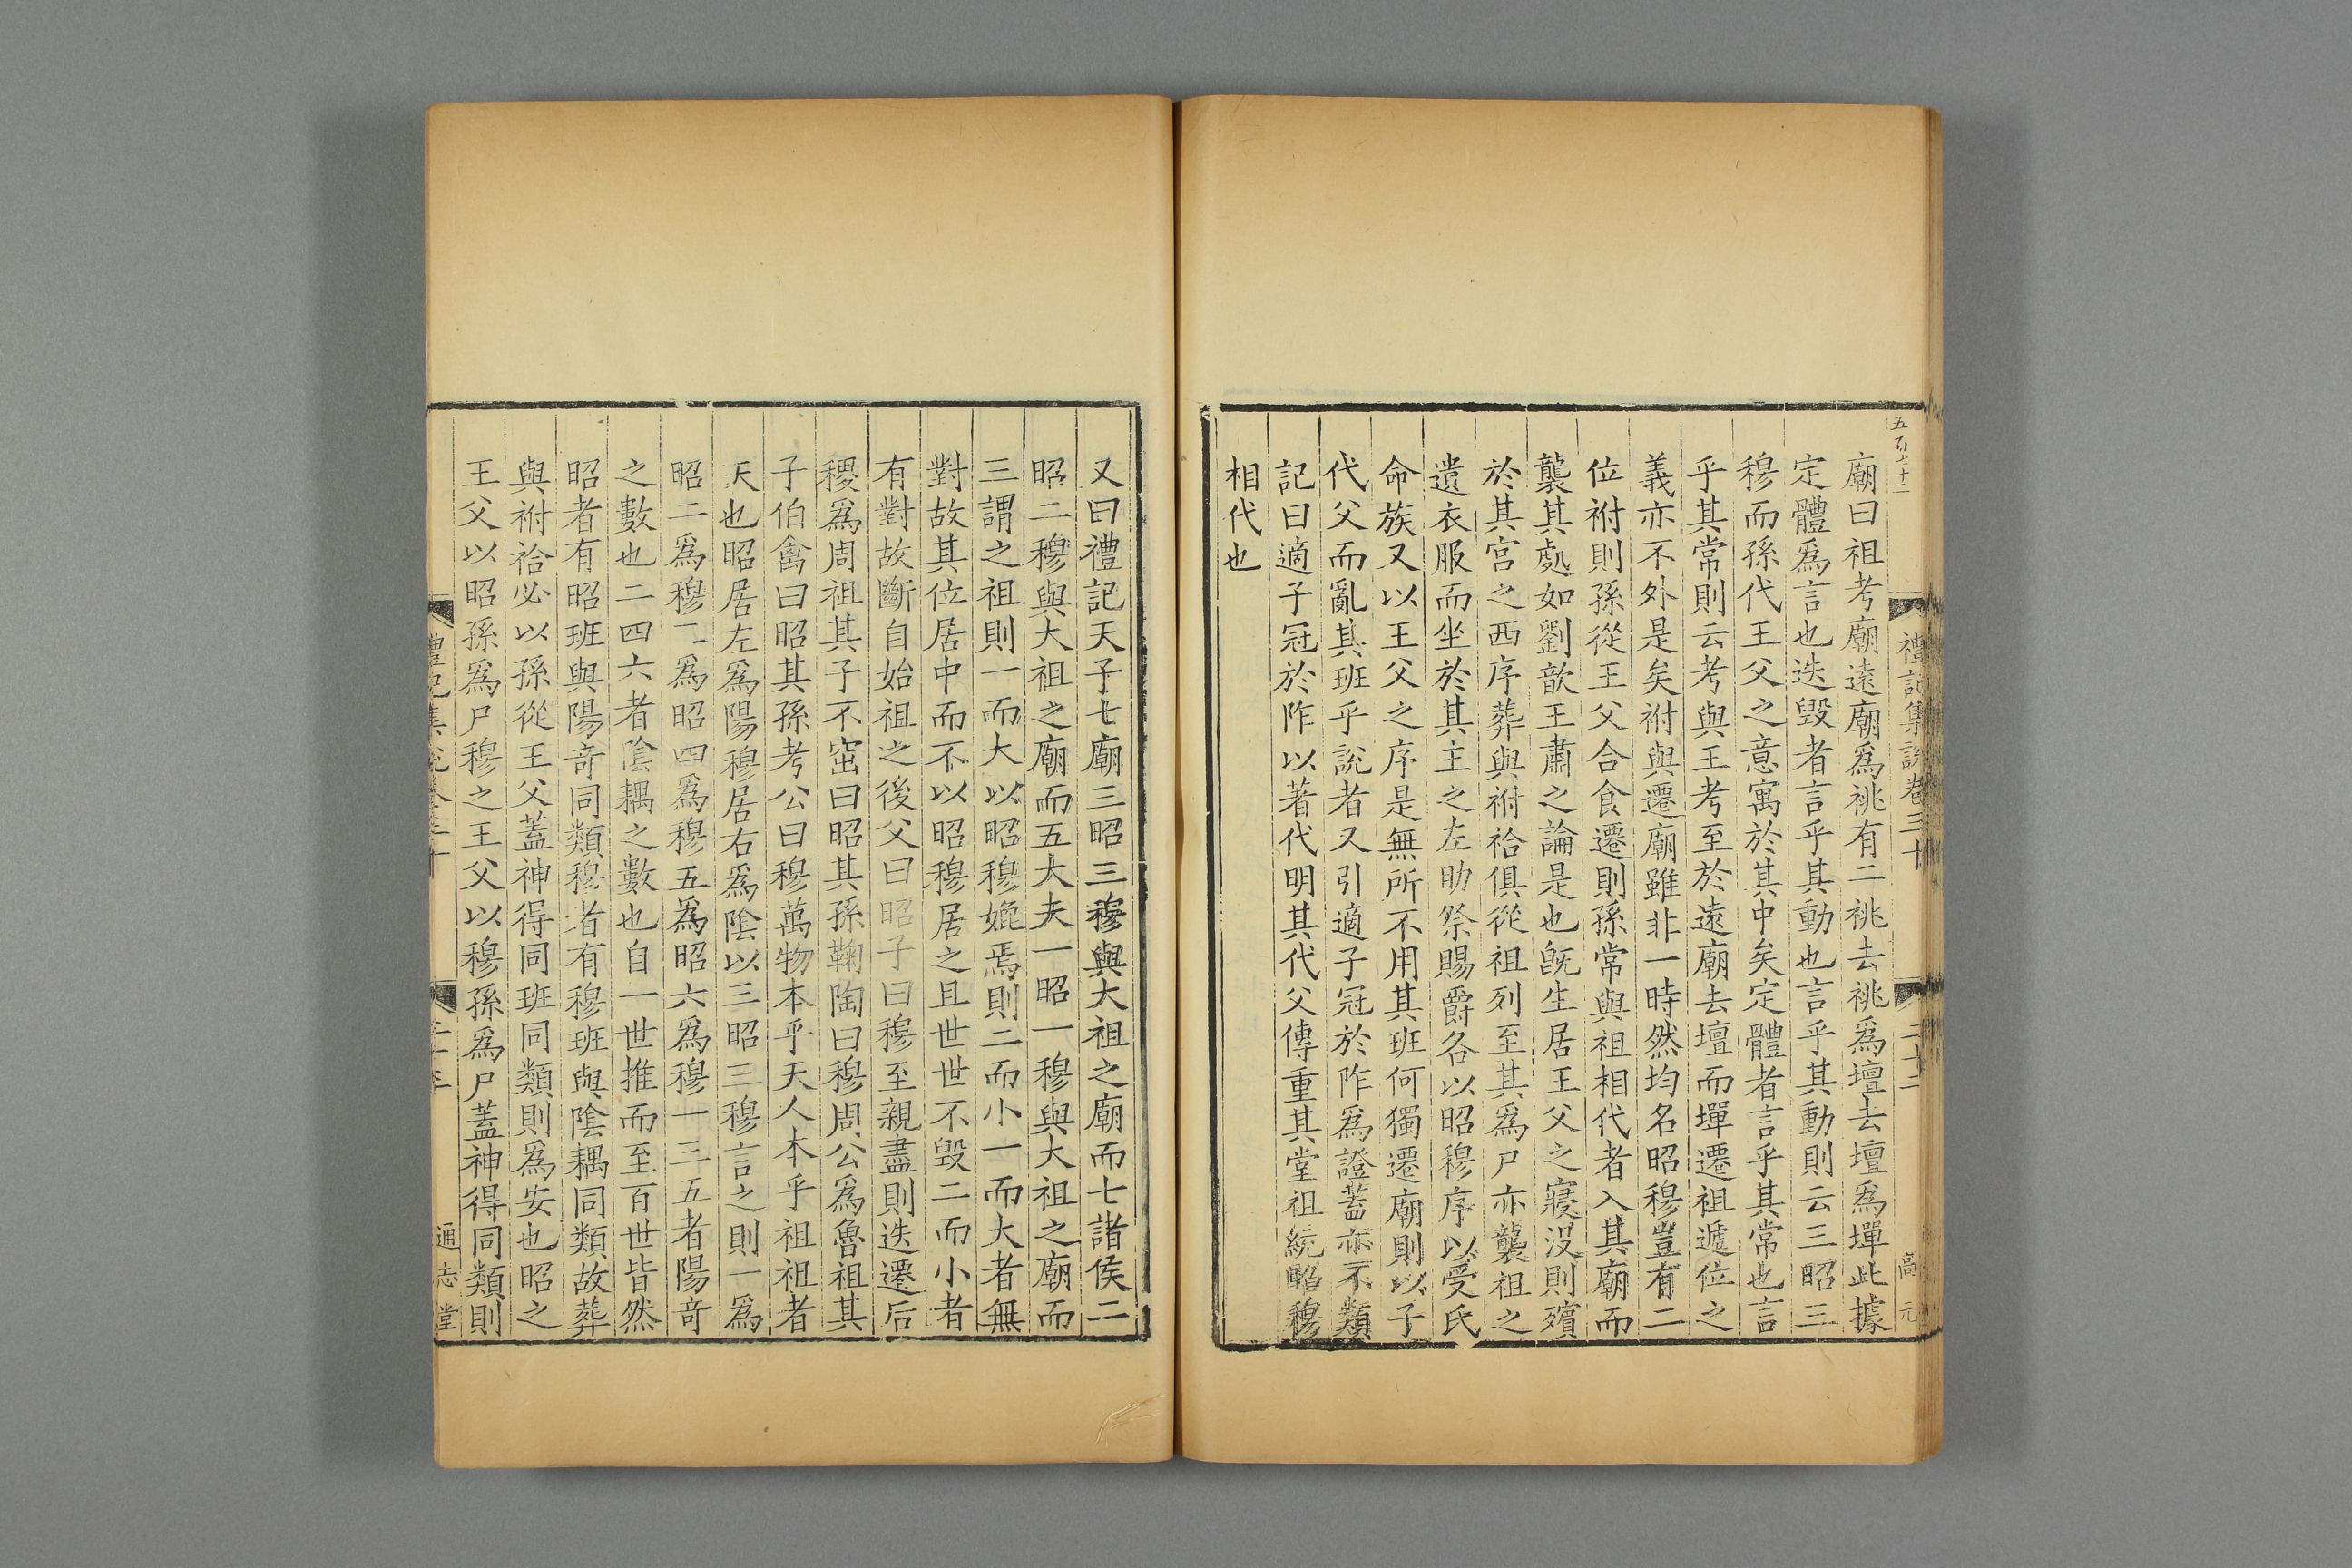 廟曰祖考廟遠廟爲祧有二祧去祧爲壇去壇爲墠此據
定體爲言也迭毀者言乎其動也言乎其動則云三昭三
穆而孫代王父之意寓於其中矣定體者言乎其常也言
乎其常則云考與王考至於遠廟去壇而墠遷祖遞位之
義亦不外是矣祔與遷廟雖非一時然均名昭穆豈有二
位祔則孫從王父合食遷則孫常與祖相代者入其廟而
襲其處如劉歆王肅之論是也旣生居王父之寢沒則殯
於其宮之西序葬與祔祫俱從祖列至其爲尸亦襲祖之
遺衣服而坐於其主之左助祭賜爵各以昭穆序以受氏
命族又以王父之序是無所不用其班何獨遷廟則以子
代父而亂其班乎說者又引適子冠於阼爲證蓋亦不類
記曰適子冠於阼以著代明其代父傳重其堂祖統昭穆
相代也
禮記集說卷三十
二十二
高元
又曰禮記天子七廟三昭三穆與大祖之廟而七諸侯二
昭二穆與大祖之廟而五大夫一昭一穆與大祖之廟而
三謂之祖則一而大以昭穆媲焉則二而小一而大者無
對故其位居中而不以昭穆居之且世世不毀二而小者
有對故斷自始祖之後父曰昭子曰穆至親盡則迭遷后
稷爲周祖其子不窋曰昭其孫鞠陶曰穆周公爲魯祖其
子伯禽曰昭其孫考公曰穆萬物本乎天人本乎祖祖者
天也昭居左爲陽穆居右爲陰以三昭三穆言之則一爲
昭二爲穆三爲昭四爲穆五爲昭六爲穆一三五者陽奇
之數也二四六者陰耦之數也自一世推而至百世皆然
昭者有昭班與陽奇同類穆者有穆班與陰耦同類故葬
與祔祫必以孫從王父蓋神得同班同類則爲安也昭之
王父以昭孫爲尸穆之王父以穆孫爲尸蓋神得同類則
禮記集說卷三十
通志堂